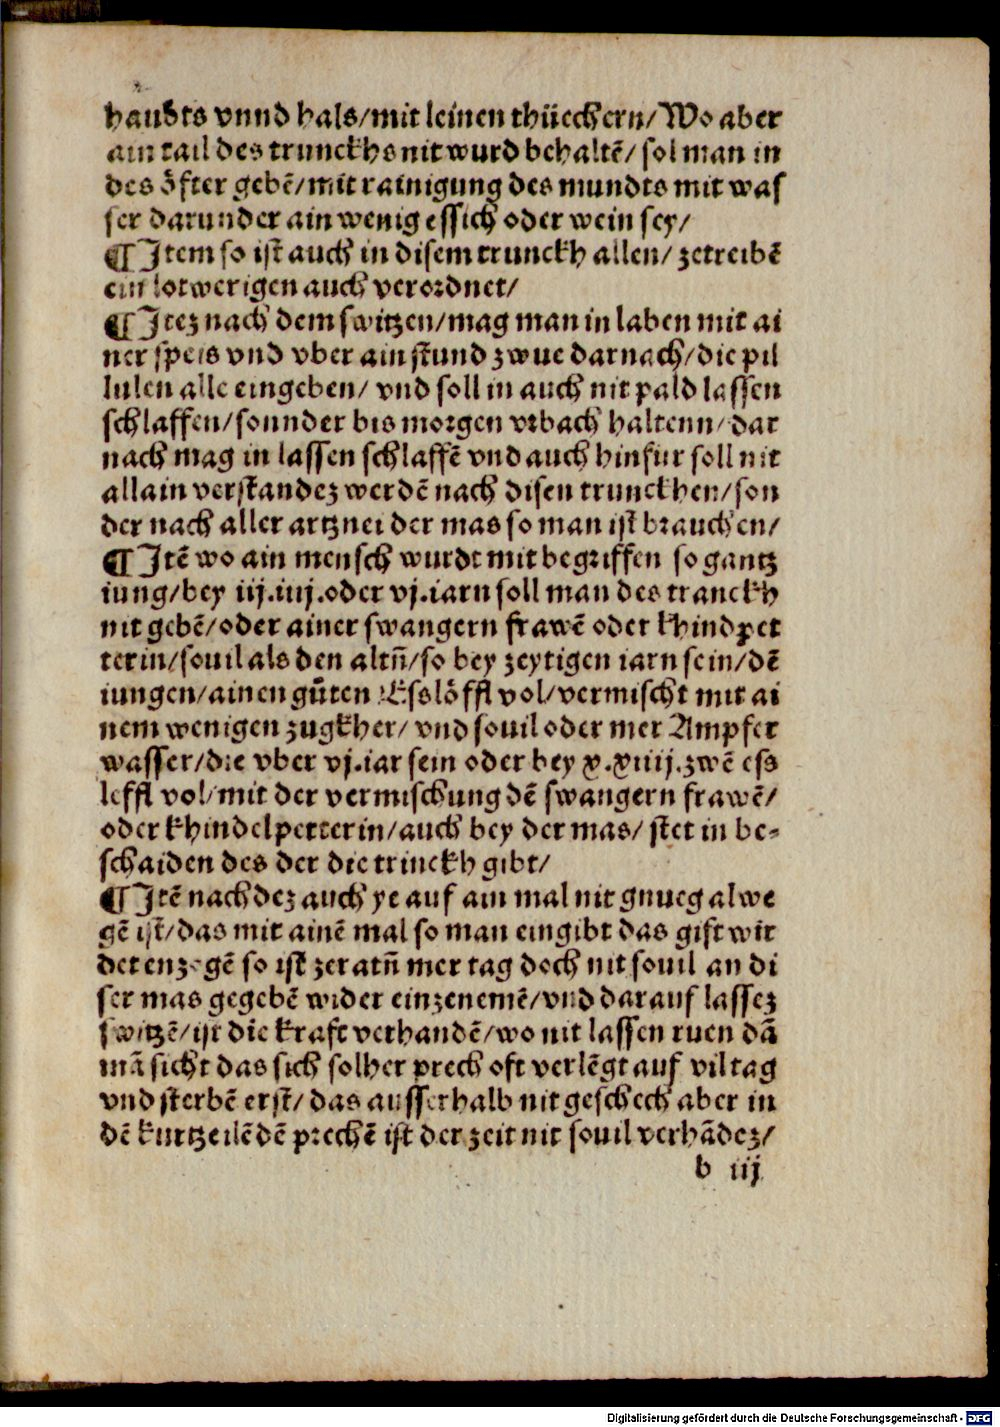 haubts vnnd hals/mit leinen thüechern/Wo aber
ain tail des trunckhs nit wurd behaltē/ sol man in
des öfter gebē/mit rainigung des mundts mit was
ser darunder ain wenig essich oder wein sey/
¶ Item so ist auch in disem trunckh allen/ zetreibē
ein lotwerigen auch verordnet/
¶ Itez nach dem switzen/mag man in laben mit ai
ner speis vnd vber ain stund zwue darnach/die pil
lulen alle eingeben/ vnd soll in auch nit pald lassen
schlaffen/sonnder bis morgen vrbach haltenn/dar
nach mag in lassen schlaffē vnd auch hinfur soll nit
allain verstandez werdē nach disen trunckhen/son
der nach aller artznei der mas so man ist brauchen/
¶ Itē wo ain mensch wurdt mit begriffen so gantz
iung/bey iij.iiij.oder vj.iarn soll man des tranckh
nit gebē/oder ainer swangern frawē oder khindpet
terin/souil als den altn̄/so bey zeytigen iarn sein/dē
iungen/ainen gůten Esslöffl vol/vermischt mit ai
nem wenigen zugkher/ vnd souil oder mer Ampfer
wasser/die vber vj.iar sein oder bey x.xiiij.zwē ess
leffl vol/mit der vermischung dē swangern frawē/
oder khindelpetterin/auch bey der mas/ stet in be-
schaiden des der die trinckh gibt/
¶ Itē nach dez auch ye auf ain mal nit gnueg alwe
gē ist/das mit ainē mal so man eingibt das gift wir
det enzogē so ist zeratn̄ mer tag doch nit souil an di
ser mas gegebē wider einzenemē/vnd darauf lassez
switzē/ist die kraft verhandē/wo nit lassen ruen dā
mā sicht das sich solher prech oft verlēgt auf vil tag
vnd sterbē erst/ das ausserhalb nit geschech aber in
dē kurtzeilēdē prechē ist der zeit nit souil verhādez/
b iij
Digitalisierung gefördert durch die Deutsche Forschungsgemeinschaft - DFG